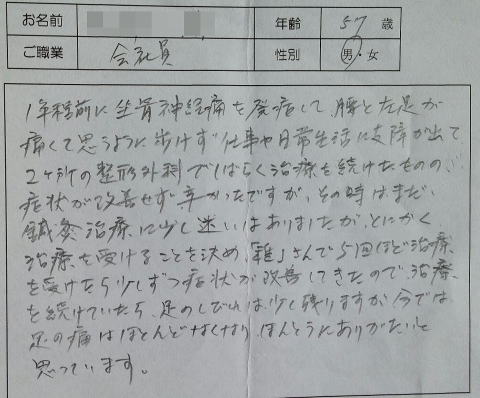 お名前 年齢 57 歳
ご職業 会社員 性別 男・女
1年程前に坐骨神経痛を発症して、腰と左足が
痛くて思うように歩けず仕事や日常生活に支障が出て
2ヶ所の整形外科でしばらく治療を続けたものの、
症状が改善せず辛かったですが、その時はまだ、
鍼灸治療に少し迷いはありましたが、とにかく
治療を受けることを決め、「雅」さんで5回ほど治療
を受けたら少しずつ症状が改善してきたので、治療
を続けていたら、足のしびれは少し残りますが今では
足の痛はほとんどなくなり、ほんとうにありがたいと
思っています。